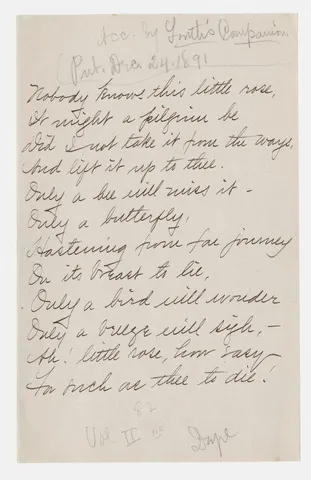 Acc. by Youth's Companion
Pub. Dec. 24. 1891
Nobody knows this little rose,
It might a pilgrim be
Did I not take it from the ways,
And lift it up to thee.
Only a bee will miss it -
Only a butterfly,
Hastening from far journey
On its breast to lie,
Only a bird will wonder
Only a breeze will sigh, -
Ah! little rose, how easy
For such as thee to die!
82
Vol. II